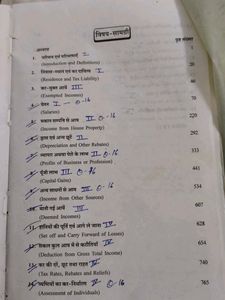 विषय-सामग्री
अध्याय
पृष्ठ संख्या
1. परिचय एवं परिभाषाएँ I
(Introduction and Definitions)
20
2. निवास-स्थान एवं कर दायित्व I
(Residence and Tax Liability)
3. कर-मुक्त आयें III
(Exempted Incomes)
4. वेतन I - 0-16
(Salaries)
5. मकान सम्पत्ति से आय II 0-16
220
(Income from House Property)
292
(Depreciation and Other Rebates)
7. व्यापार अथवा पेशे के लाभ II 0-16
333
(Profits of Business or Profession)
8. पूँजी लाभ III 0-16
441
(Capital Gains)
9. अन्य साधनों से आय III 0-16
534
(Income from Other Sources)
10. मानी गई आयें III
607
(Deemed Incomes)
11. हानियों की पूर्ति एवं आगे ले जाना IV
628
(Set off and Carry Forward of Losses)
12. सकल कुल आय में से कटौतियाँ IV
654
(Deduction from Gross Total Income)
13. कर की दरें, छूट तथा राहत IV
740
(Tax Rates, Rebates and Reliefs)
14. व्यक्तियों का कर-निर्धारण IV 0-16
765
(Assessment of Individuals)